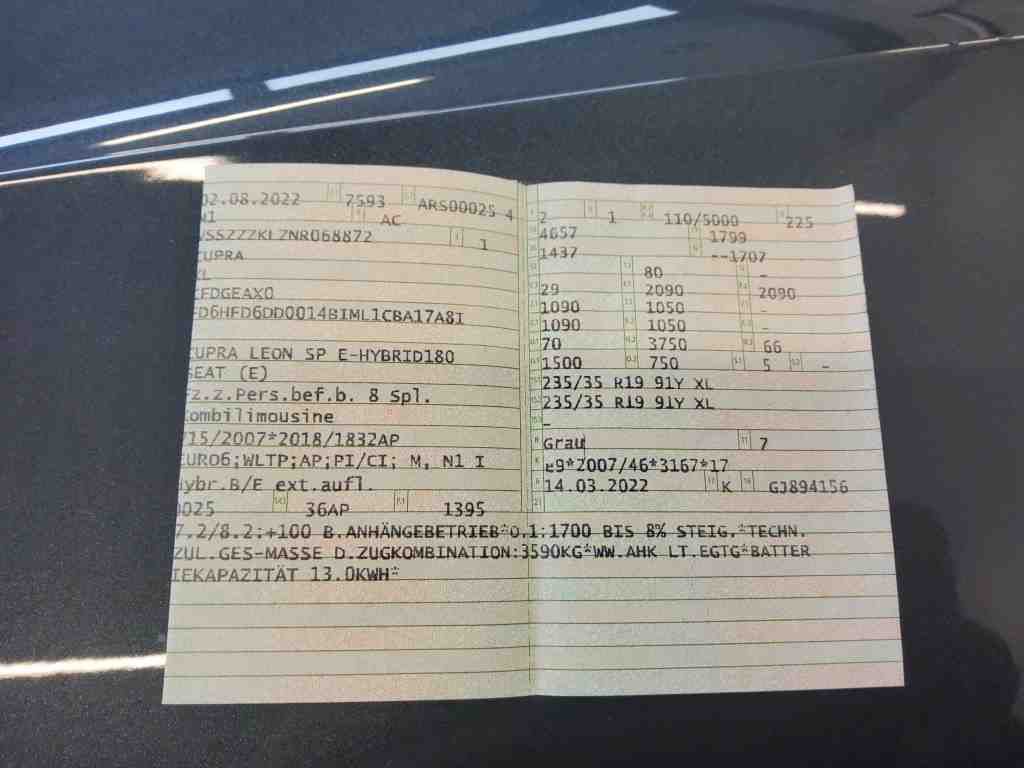 02.08.2022 7593 ARS00025 4
M1 AC
VSSZZZKLZNR068872 1
CUPRA
KL
CFDGEAX0
FD6HFD6DD0014BIML1CBA17A8I
CUPRA LEON SP E-HYBRID180
SEAT (E)
Fz.z.Pers.bef.b. 8 Spl.
Kombilimousine
715/2007*2018/1832AP
EURO6;WLTP;AP;PI/CI; M, N1 I
Hybr.B/E ext.aufl.
0025 36AP 1395
2 1 110/5000 225
4657 1799
1437 --1707
80 -
29 2090 2090
1090 1050 -
1090 1050 -
70 3750 66
1500 750 5 -
235/35 R19 91Y XL
235/35 R19 91Y XL
-
Grau 7
e9*2007/46*3167*17
14.03.2022 K GJ894156
7.2/8.2:+100 B.ANHÄNGEBETRIEB*O.1:1700 BIS 8% STEIG.*TECHN.
ZUL.GES-MASSE D.ZUGKOMBINATION:3590KG*WW.AHK LT.EGTG*BATTER
IEKAPAZITÄT 13.0KWH*